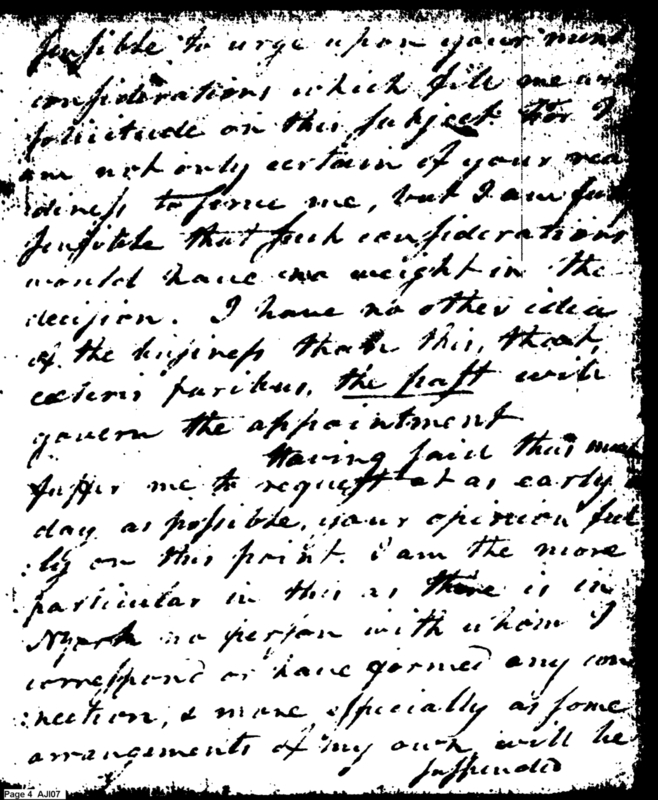 sensible to urge upon your mind
considerations which fill me with
solicitude on this subject. For I
am not only certain of your rea
diness to serve me, but I am fully
sensible that such considerations
would have no weight in the
decision. I have no other idea
of the business than this, that,
cæteris paribus, the past will
govern the appointment
Having said thus much
suffer me to request at as early a
day as possible, your opinion ful
:ly on this point. I am the more
particular in this as there is in
NYork no person with whom I
correspond or have formed any con
:nection, & more especially as some
arrangements of my own will be
suspended
Page 4 AJI07